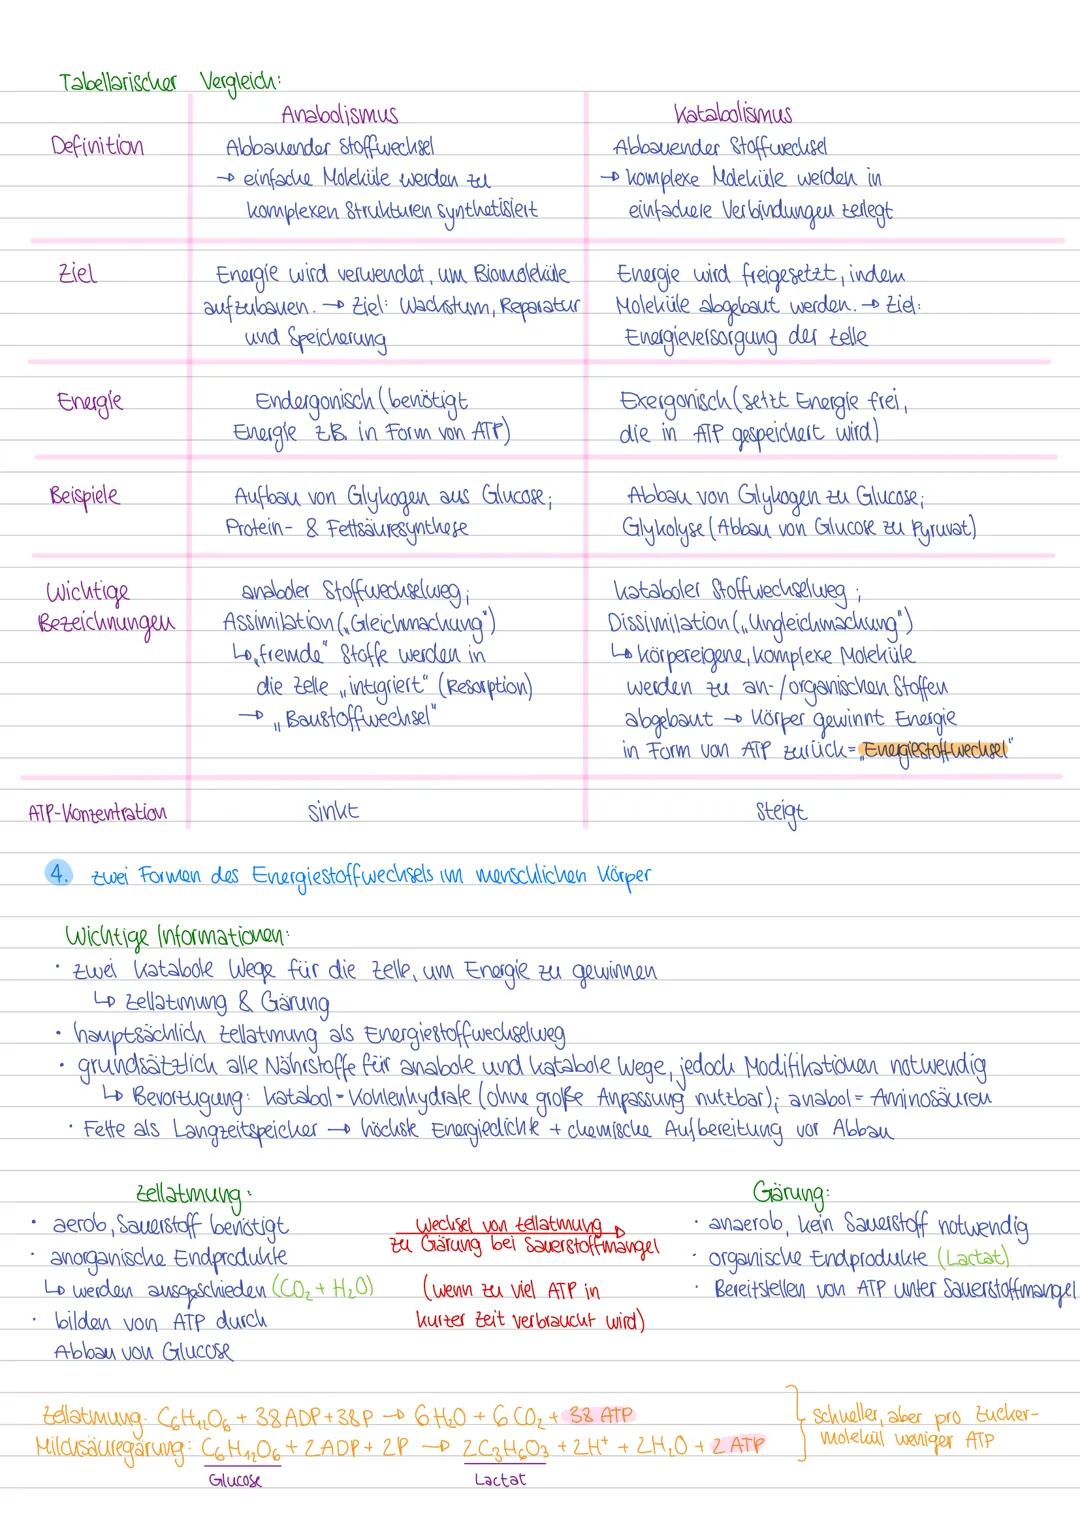 Tabellarischer Vergleich:
Anabolismus
Katabolismus
Definition
Abbauender Stoffwechsel
→ einfache Moleküle werden zu
komplexen Strukturen synthetisiert
Abbauender Stoffwechsel
→ komplexe Moleküle werden in
einfachere Verbindungen zerlegt
Ziel
Energie wird verwendet, um Biomoleküle
aufzubauen. → Ziel: Wachstum, Reparatur
und Speicherung
Energie wird freigesetzt, indem
Moleküle abgebaut werden. → Ziel:
Energieversorgung der Zelle
Energie
Endergonisch (benötigt
Energie z.B. in Form von ATP)
Exergonisch (setzt Energie frei,
die in ATP gespeichert wird)
Beispiele
Aufbau von Glykogen aus Glucose;
Protein- & Fettsäuresynthese
Abbau von Glykogen zu Glucose;
Glykolyse (Abbau von Glucose zu Pyruvat)
Wichtige
Bezeichnungen
anaboler Stoffwechselweg;
Assimilation („Gleichmachung“)
↳ „fremde“ Stoffe werden in
die Zelle „integriert“ (Resorption)
→ „Baustoffwechsel“
kataboler Stoffwechselweg;
Dissimilation („Ungleichmachung“)
↳ körpereigene, komplexe Moleküle
werden zu an-/organischen Stoffen
abgebaut → Körper gewinnt Energie
in Form von ATP zurück = „Energiestoffwechsel“
ATP-Konzentration
sinkt
steigt
4. zwei Formen des Energiestoffwechsels im menschlichen Körper
Wichtige Informationen:
· zwei katabole Wege für die Zelle, um Energie zu gewinnen
↳ Zellatmung & Gärung
· hauptsächlich Zellatmung als Energiestoffwechselweg
· grundsätzlich alle Nährstoffe für anabole und katabole Wege, jedoch Modifikationen notwendig
↳ Bevorzugung: katabol = Kohlenhydrate (ohne große Anpassung nutzbar); anabol = Aminosäuren
· Fette als Langzeitspeicher → höchste Energiedichte + chemische Aufbereitung vor Abbau
Zellatmung:
· aerob, Sauerstoff benötigt
· anorganische Endprodukte
↳ werden ausgeschieden (CO₂ + H₂O)
· bilden von ATP durch
Abbau von Glucose
Wechsel von Zellatmung
zu Gärung bei Sauerstoffmangel
(wenn zu viel ATP in
kurzer Zeit verbraucht wird)
Gärung:
· anaerob, kein Sauerstoff notwendig
· organische Endprodukte (Lactat)
· Bereitstellen von ATP unter Sauerstoffmangel
Zellatmung: C₆H₁₂O₆ + 38 ADP + 38 P → 6 H₂O + 6 CO₂ + 38 ATP
Milchsäuregärung: C₆H₁₂O₆ + 2 ADP + 2P → 2 C₃H₆O₃ + 2H⁺ + 2H₂O + 2 ATP
Glucose
Lactat
schneller, aber pro Zucker-
molekül weniger ATP